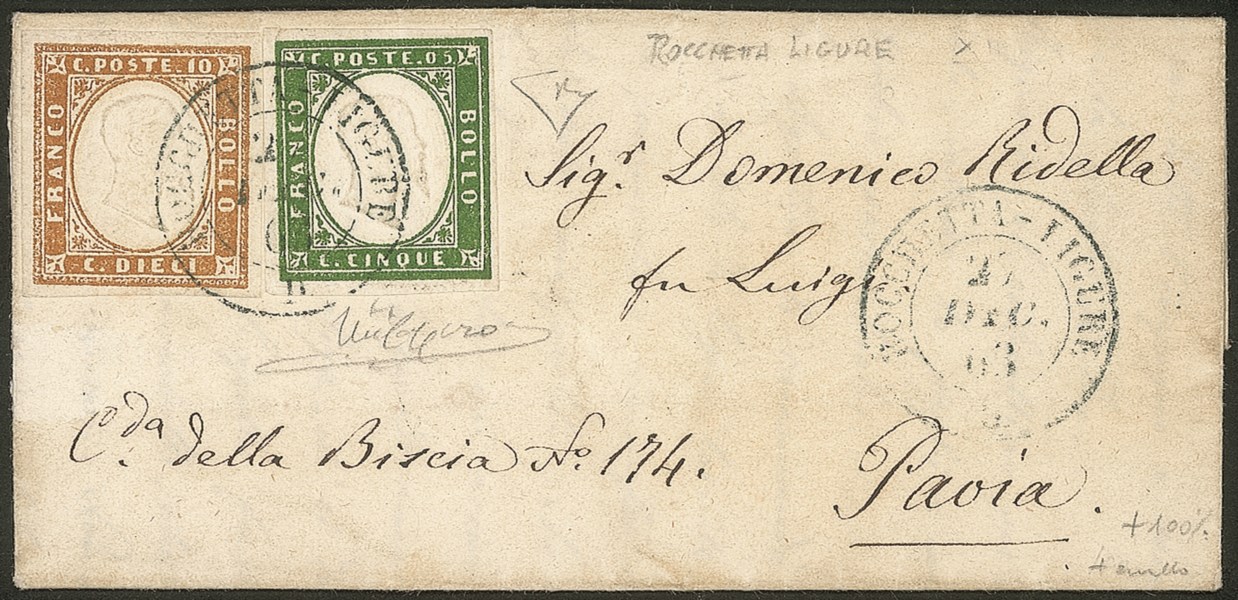 ROCCHETTA LIGURE
C. POSTE. 10
FRANCO
BOLLO
C. DIECI
C. POSTE. 05
FRANCO
BOLLO
C. CINQUE
Sig.r Domenico Ridella
fu Luigi
ROCCHETTA-LIGURE
27
DIC.
63
C.da della Biscia No. 174.
Pavia.
+100%